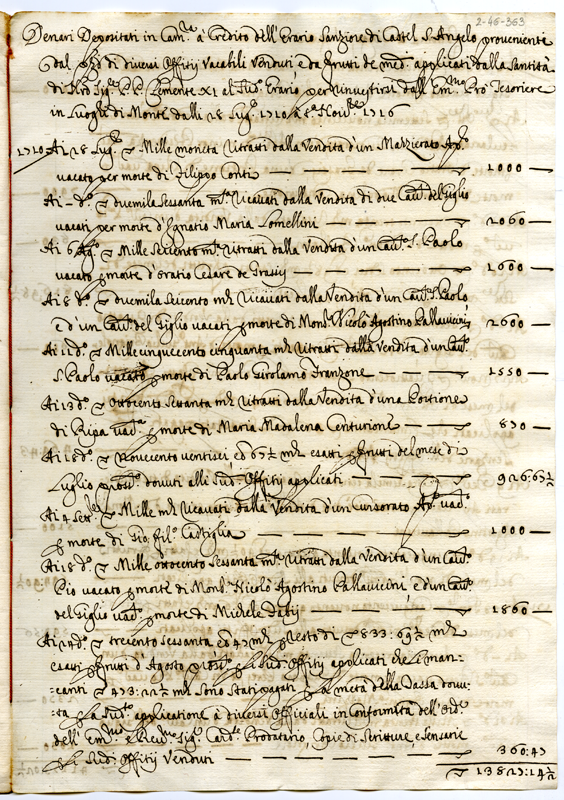 2-46-363
Denari Depositati in Cam.ra à Credito dell'Erario Sanziore di Castel S. Angelo proveniente
dal di diversi Offitij Vacabili Venduti e da frutti de med.i applicati dalla Santità
di N.ro Sig.re P.P. Clemente XI al Sud.o Erario per rinvestirsi dall' Em.mo Pro Tesoriere
in Luoghi di Monte dalli 28 Lug.o 1710 à 8 Nov.bre 1716
1710 Ai 28 Lug.o Mille moneta ritratti dalla Vendita d'un Mazzierato Ap.co
vacato per morte di Filippo Conti 1000
Ai - d.o duemila sessanta m.ta ricavati dalla Vendita di due Cau.ti del Giglio
vacati per morte d'Ignatio Maria Lomellini 2060
Ai 6 Ag.o Mille Seicento m.ta ritratti dalla Vendita d'un Cau.to S. Paolo
vacato p morte d'Oratio Cesare de Grassij 1600
Ai 8 d.o duemila Seicento m.ta ricavati dalla Vendita d'un Cau.to S. Paolo
e d'un Cau.to del Giglio vacati p morte di Mons. Nicolò Agostino Pallavicini 2600
Ai 11 d.o Mille cinquecento cinquanta m.ta ritratti dalla Vendita d'un Cau.to
S. Paolo vacato p morte di Paolo Girolamo Franzone 1550
Ai 13 d.o Ottocento settanta m.ta ritratti dalla Vendita d'una Portione
di Ripa vad.a p morte di Maria Madalena Centurione 870
Ai 18 d.o Novecento ventisei ed 67½ m.ta esatti p frutti del mese di
Luglio pross.o dovuti alli Sud.i Offitij applicati 926:67½
Ai 4 Sett.e Mille m.ta ricavati dalla Vendita d'un Cursorato Ap. vac.o
p morte di Gio. fil.o Castiglia 1000
Ai 18 d.o Mille ottocento sessanta m.ta ritratti dalla Vendita d'un Cau.to
Pio vacato p morte di Mons. Nicolò Agostino Pallavicini, e d'un Cau.to
del Giglio vac.o p morte di Michele 1860
Ai 24 d.o trecento sessanta ed 47 m.ta p resto di 833:69½ m.ta
esatti p frutti d'Agosto pross.o p li Sud.i Offitij applicati che li man=
=canti 473:22½ m.ta sono stati pagati p la metà della Tassa dovu=
=ta p la Sud.a applicatione à diversi Officiali in conformità dell'ord.e
dell' Em.mo e Rev.mo Sig. Card.le Prodatario, Copie di Scritture, e Senserie
p li Sud.i Offitij Venduti 360:47
13827:14½